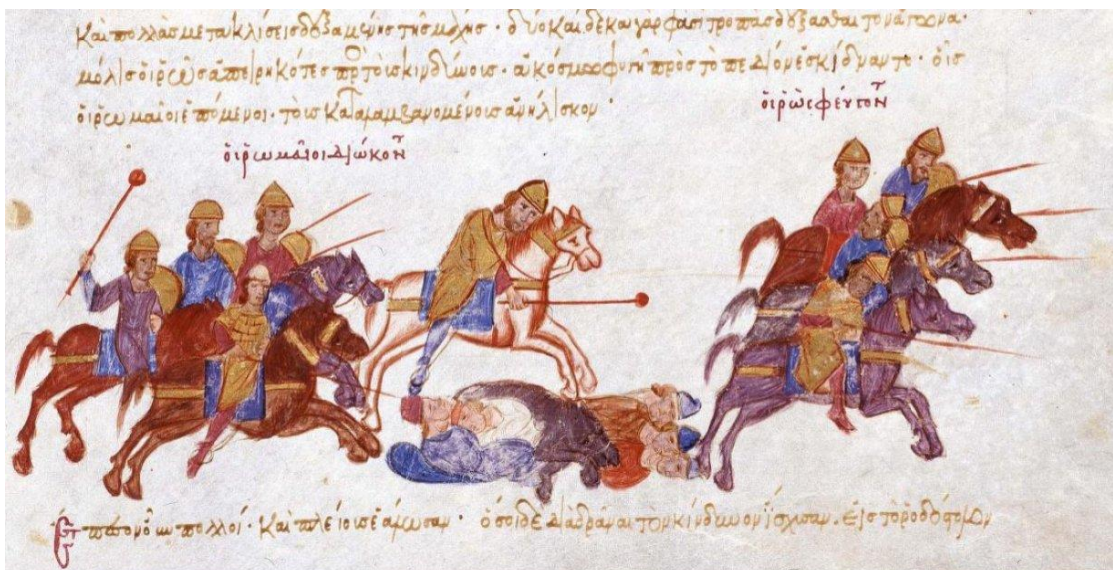 καὶ πολλὰς μετακλίσεις δεξαμένης τῆς μάχης · δύο καὶ δέκα γάρ φασι τροπὰς δέξασθαι τὸν ἀγῶνα ·
μόλις οἱ ῥῶς ἀπειρηκότες τοῖς κινδύνοις · ἀκόσμω φυγῆ πρὸς τὸ πεδίον ἐσκίδναντο · οἷς
οἱ ῥωμαῖοι ἑπόμενοι · τοῖς καταλαμβανομένοις ἀνήλισκον ·
οἱ ῥῶς φεύγοντ
οἱ ῥωμαῖοι διώκοντ
ἔπιπτον οὖν πολλοί · καὶ πλείους ἑάλωσαν · ὅσοι δὲ διαδρᾶναι τὸν κίνδυνον ἴσχυσαν · εἰς τὸ